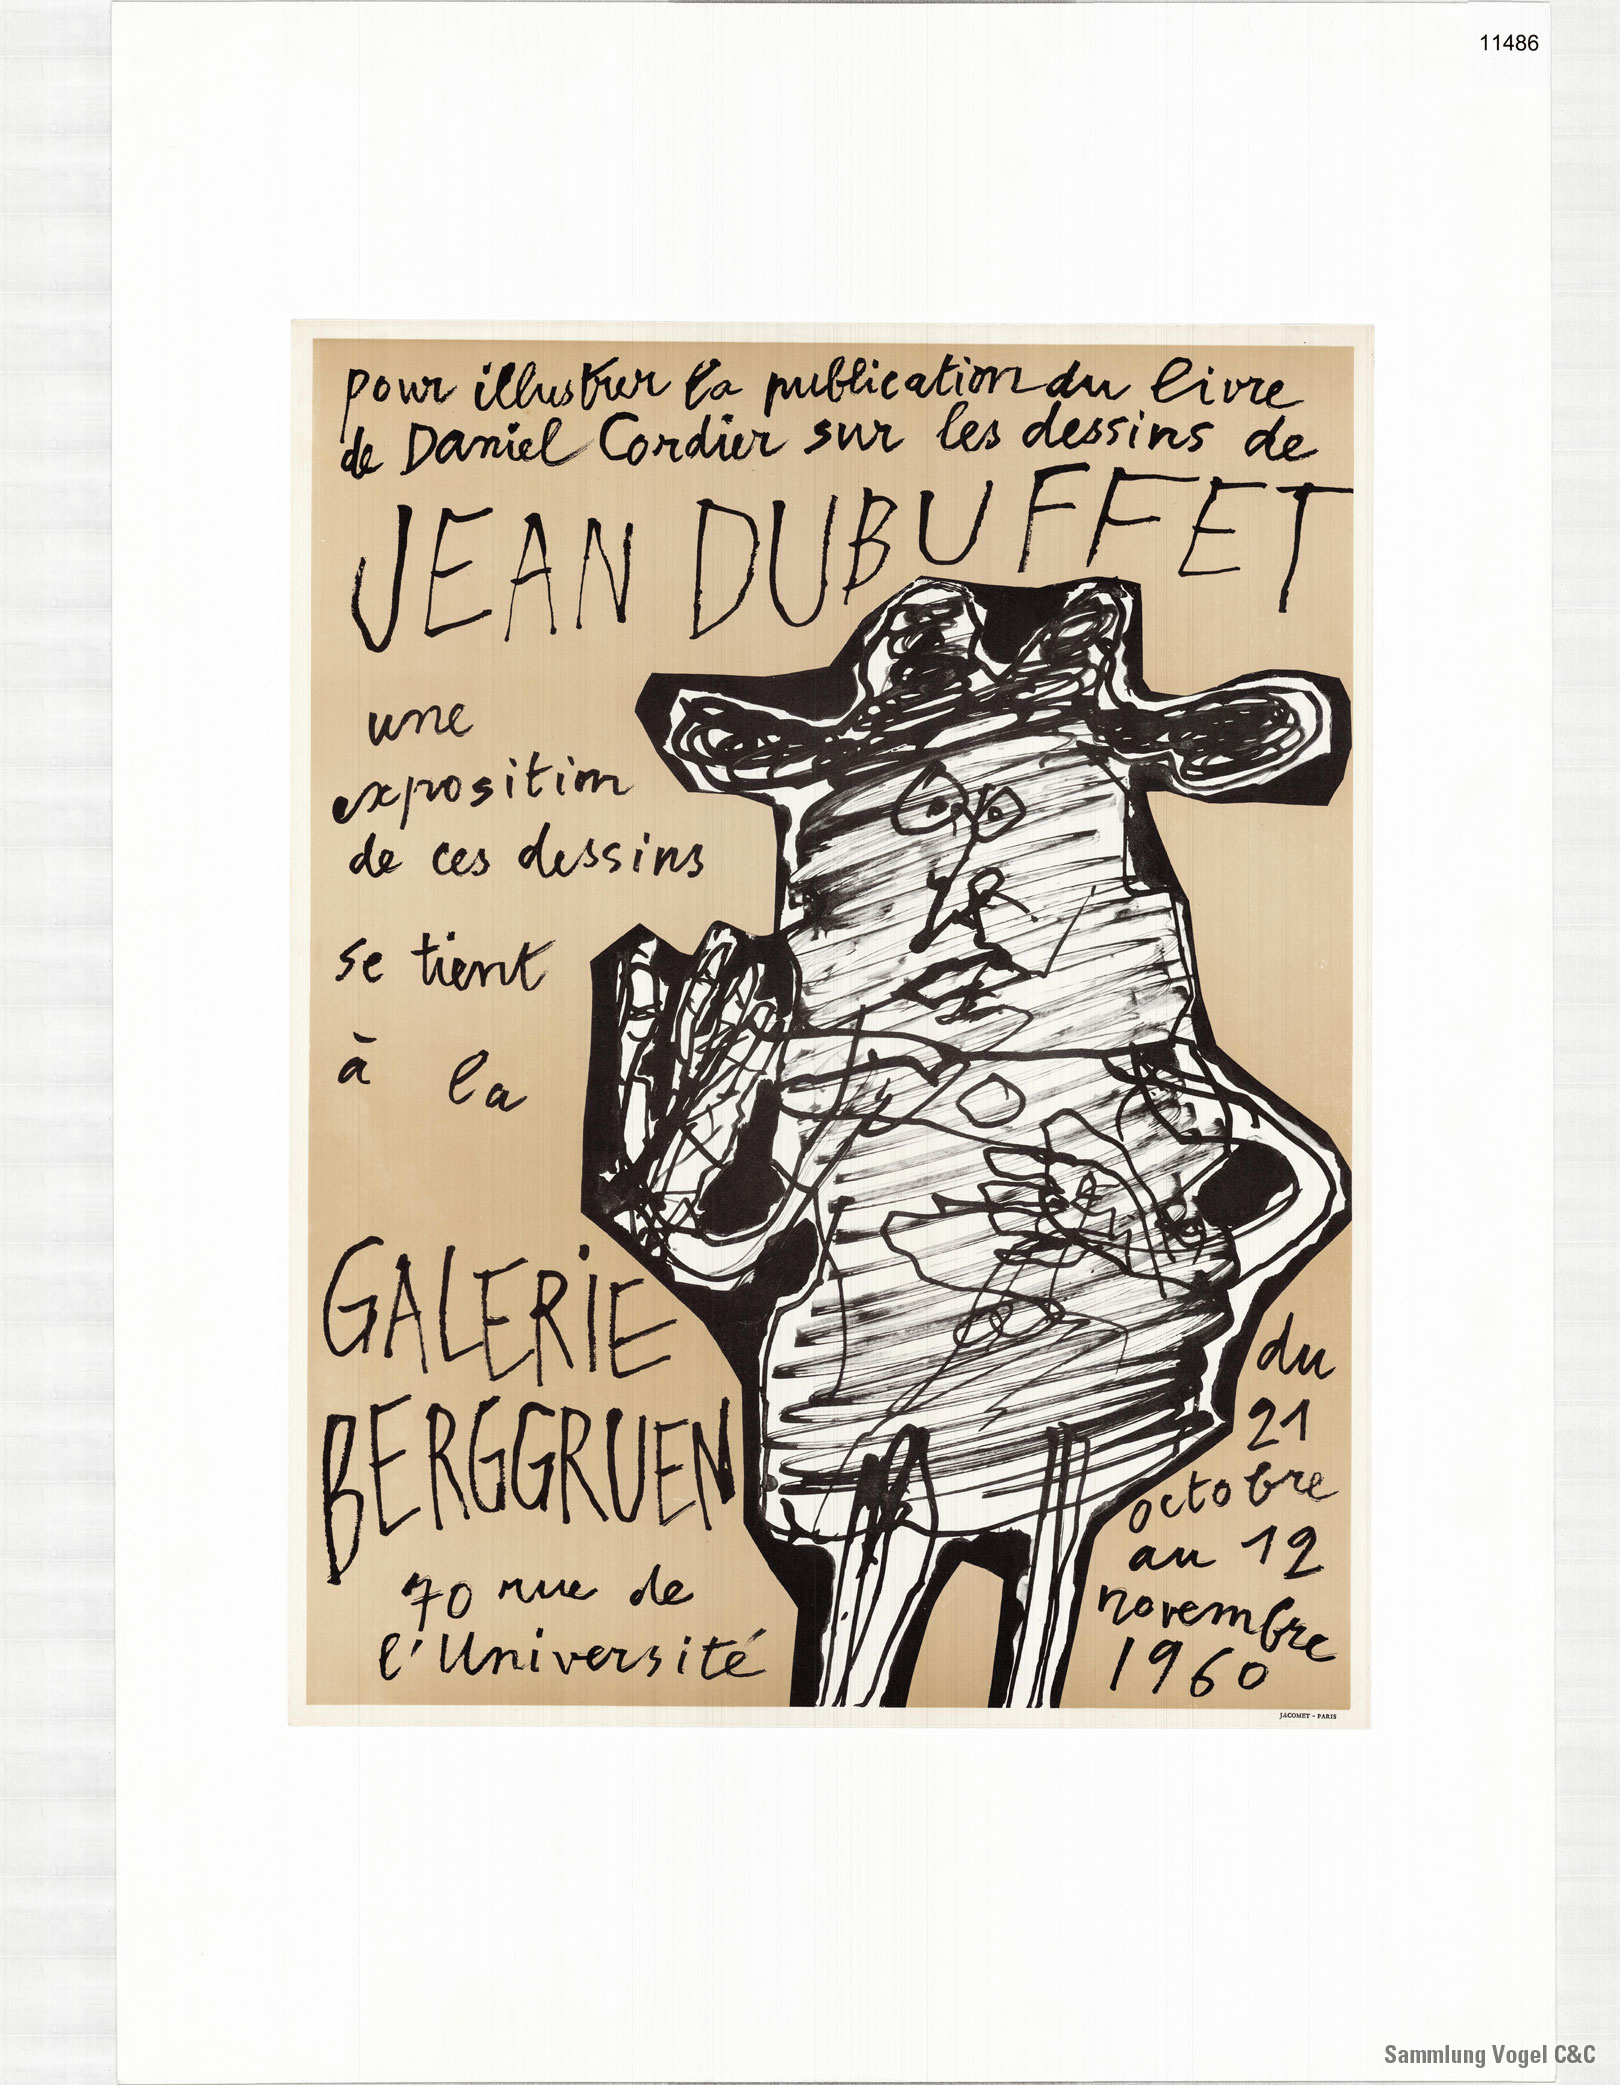 11486
pour illustrer la publication du livre
de Daniel Cordier sur les dessins de
JEAN DUBUFFET
une
exposition
de ces dessins
se tient
à la
GALERIE
BERGGRUEN
70 rue de
l'Université
du
21
octobre
au 12
novembre
1960
JACOMET - PARIS
Sammlung Vogel C&C